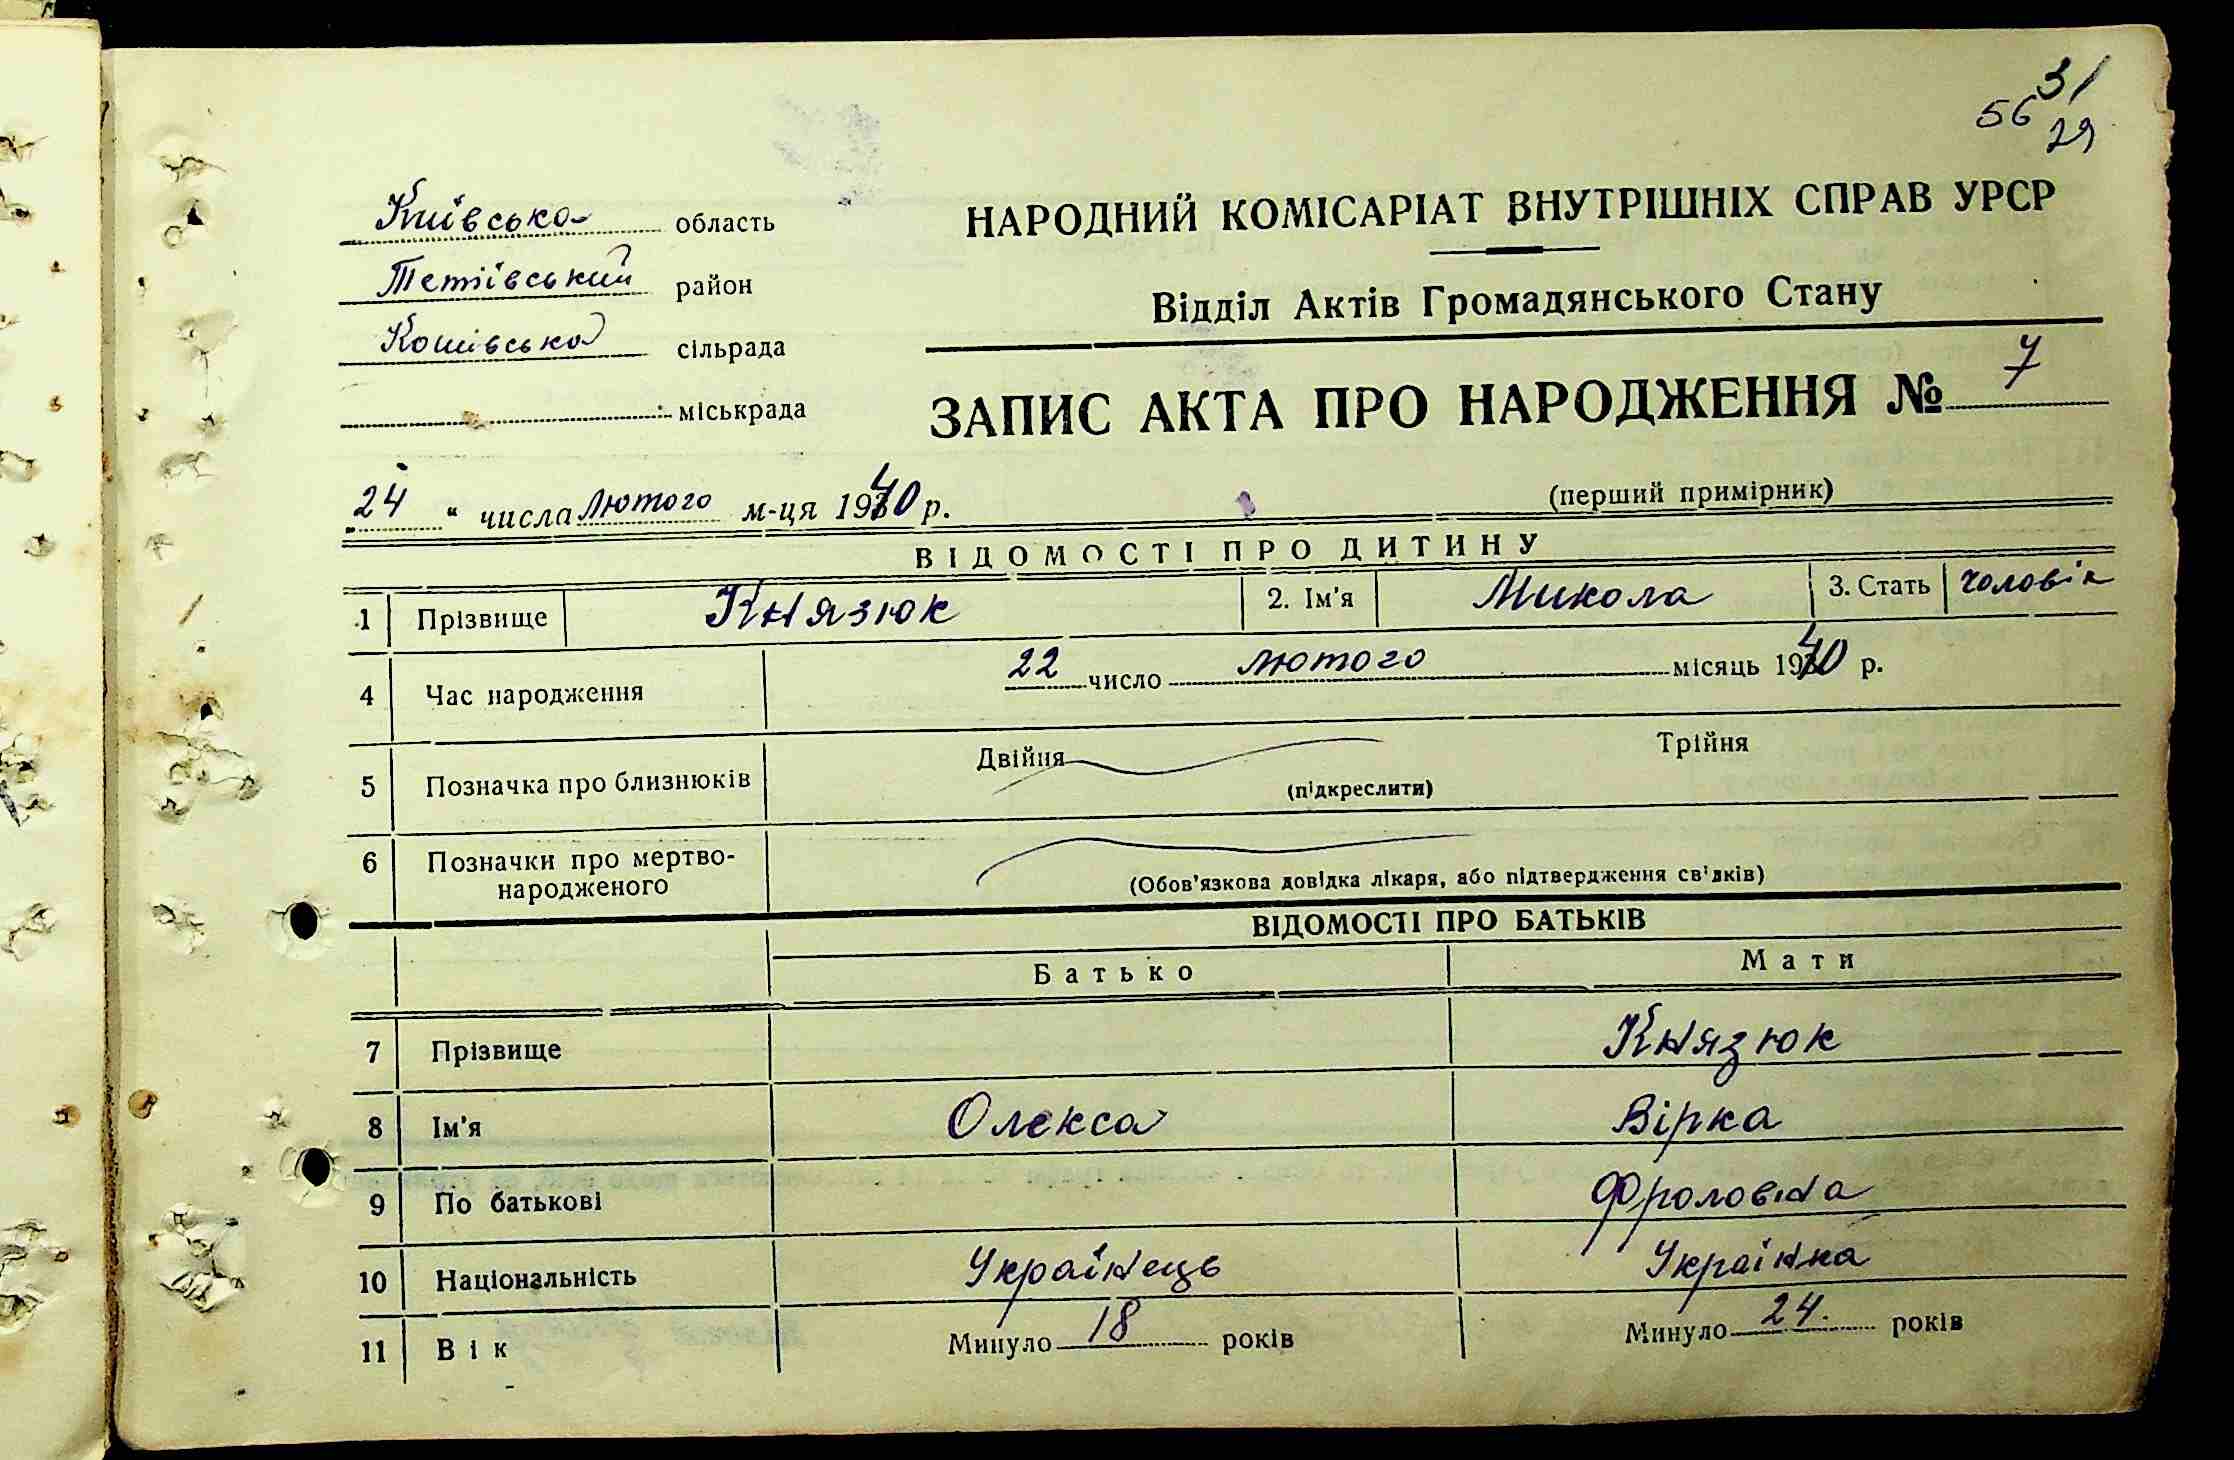 31
56
29
Київська область
Тетіївський район
Кошівська сільрада
міськрада
НАРОДНИЙ КОМІСАРІАТ ВНУТРІШНІХ СПРАВ УРСР
Відділ Актів Громадянського Стану
ЗАПИС АКТА ПРО НАРОДЖЕННЯ № 7
(перший примірник)
„ 24 " числа лютого м-ця 1940 р.
ВІДОМОСТІ ПРО ДИТИНУ
1 Прізвище Князюк 2. Ім'я Микола 3. Стать чоловік
4 Час народження 22 число лютого місяць 1940 р.
5 Позначка про близнюків Двійня Трійня
(підкреслити)
6 Позначки про мертво-
народженого
(Обов'язкова довідка лікаря, або підтвердження свідків)
ВІДОМОСТІ ПРО БАТЬКІВ
Батько Мати
7 Прізвище Князюк
8 Ім'я Олекса Вірка
9 По батькові Фроловна
10 Національність Українець Українка
11 Вік Минуло 18 років Минуло 24. років